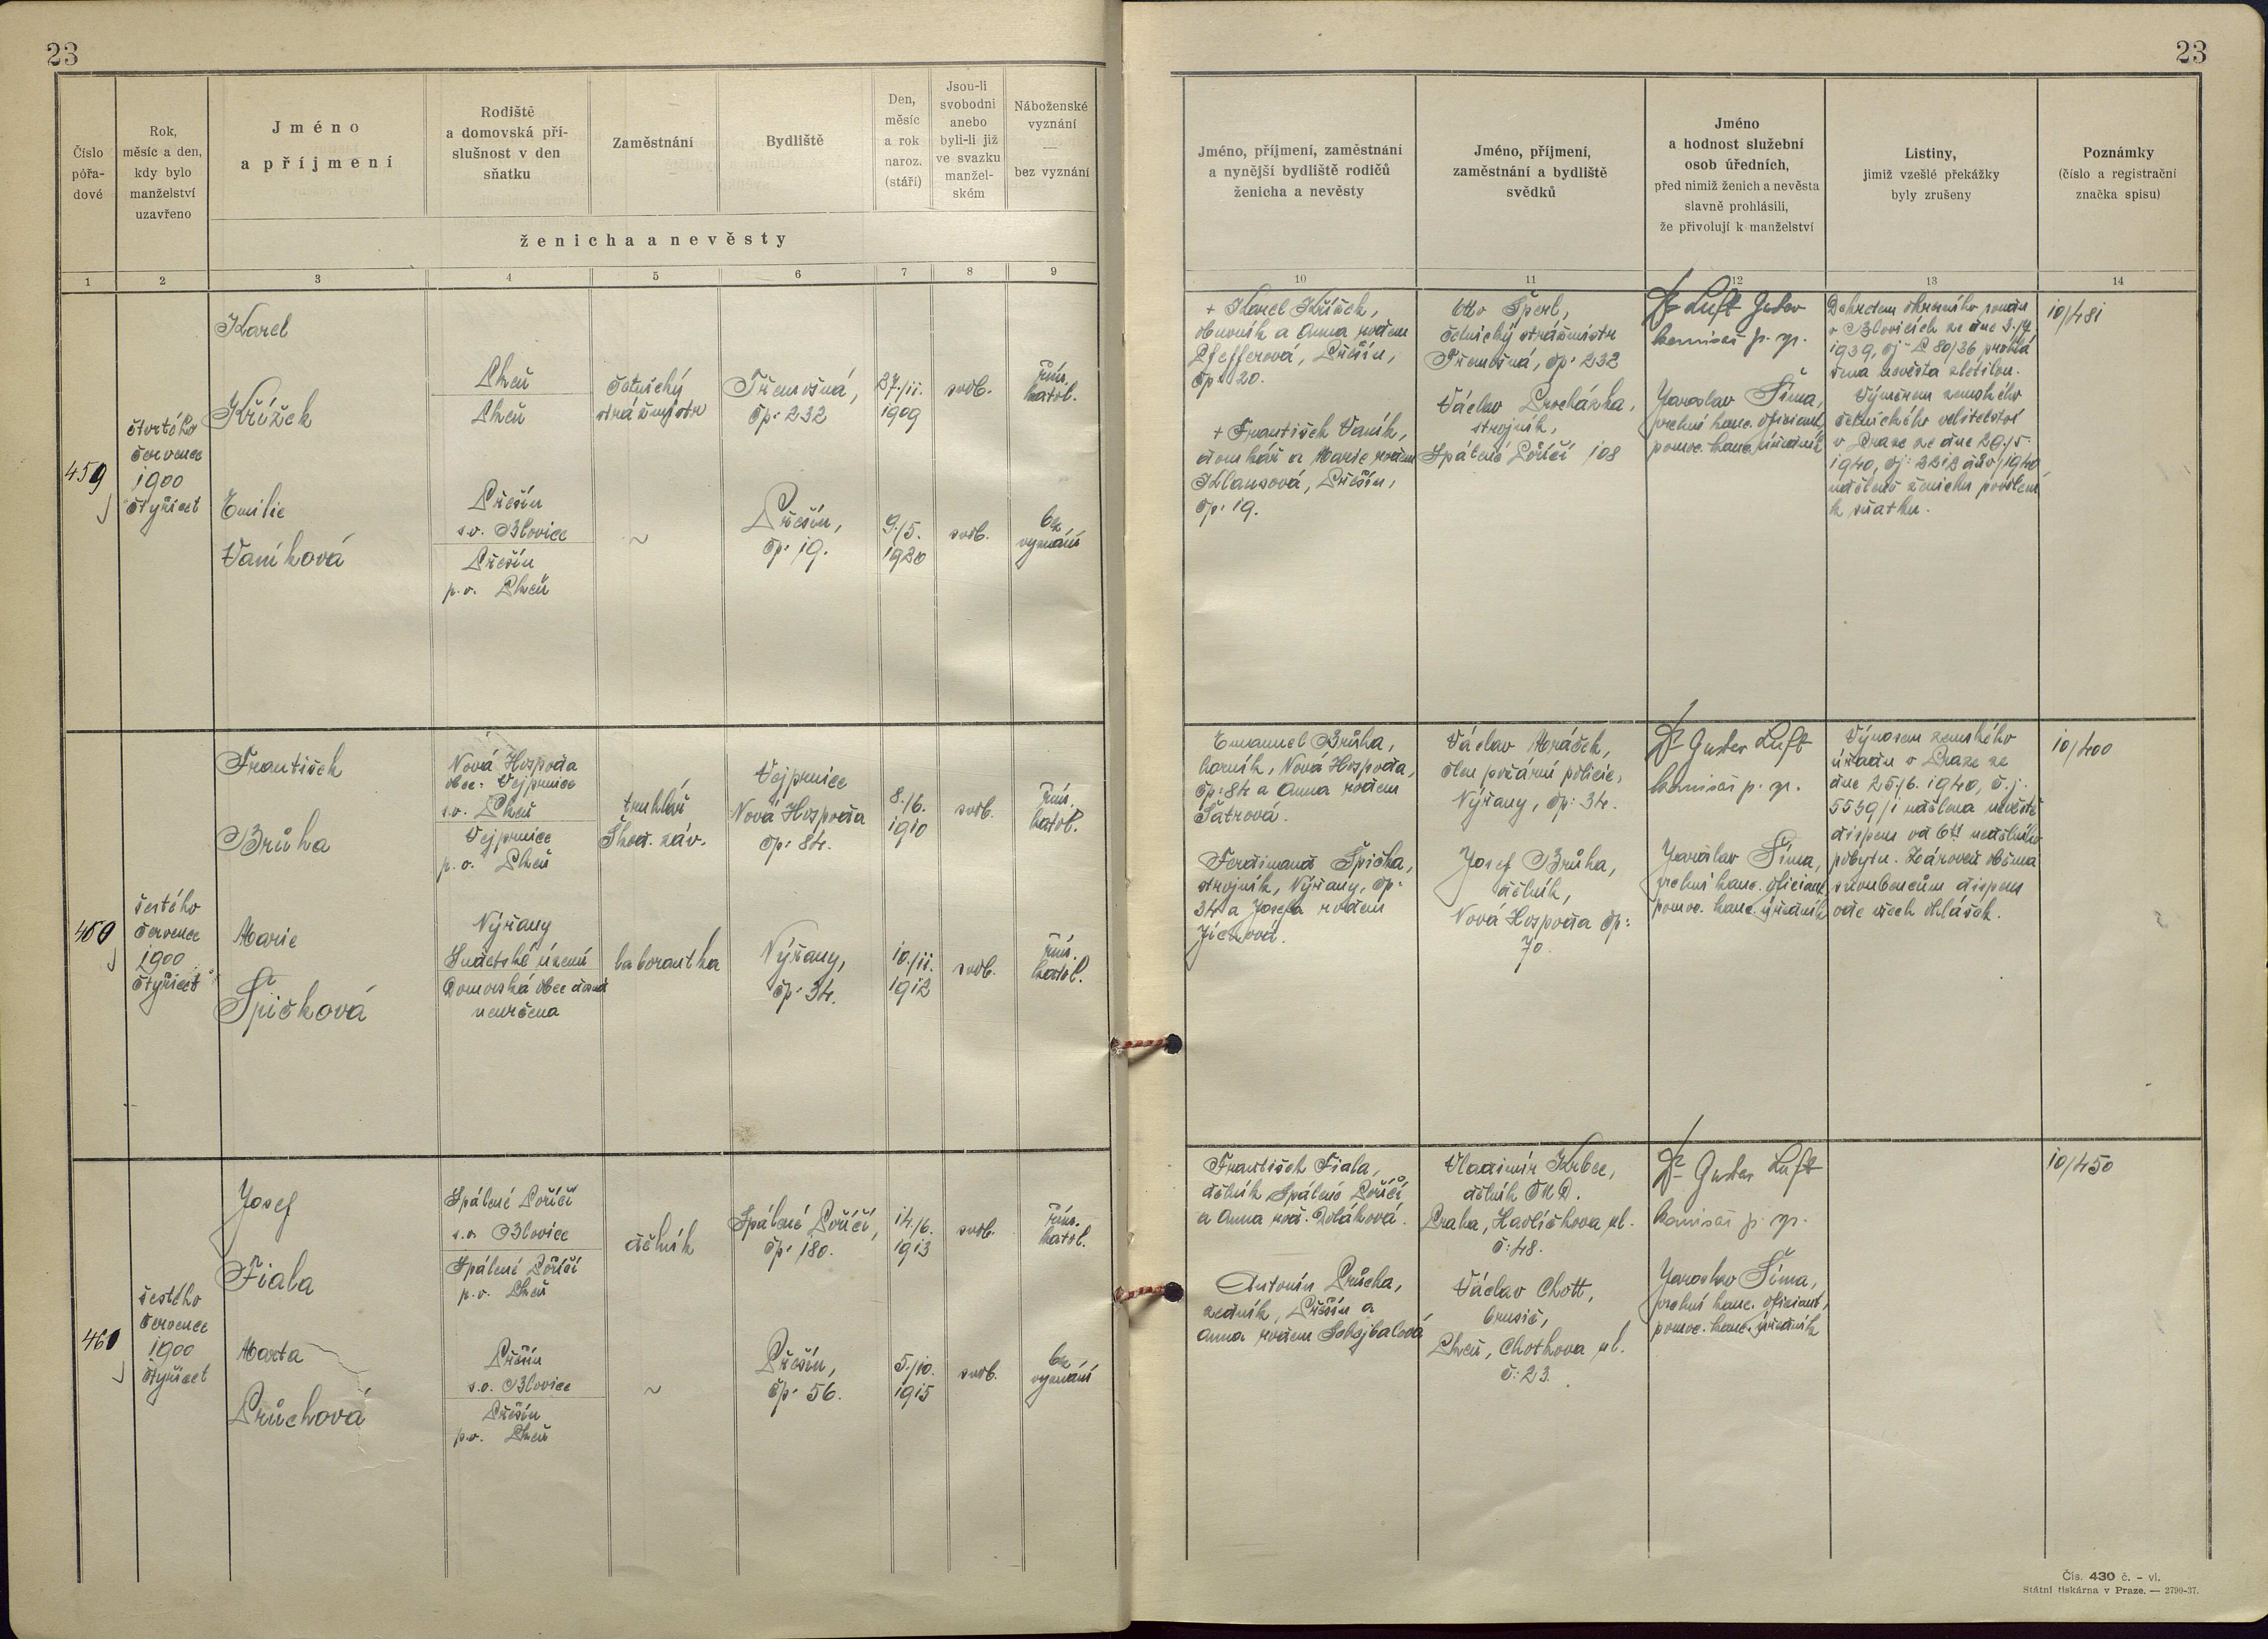 23
Číslo
pořa-
dové
Rok,
měsíc a den,
kdy bylo
manželství
uzavřeno
Jméno
a příjmení
Rodiště
a domovská pří-
slušnost v den
sňatku
Zaměstnání
Bydliště
Den,
měsíc
a rok
naroz.
(stáří)
Jsou-li
svobodni
anebo
byli-li již
ve svazku
manžel-
ském
Náboženské
vyznání
—
bez vyznání
ženicha a nevěsty
1
2
3
4
5
6
7
8
9
459
čtvrtého
července
1900
čtyřicet
Karel
Křížek
Plzeň
Plzeň
četnický
strážmistr
Třemošná,
čp: 232
27./11.
1909
svob.
řím.
katol.
Emilie
Vaníková
Přešín
s.o. Blovice
Přešín
p.o. Plzeň
~
Přešín,
čp: 19.
9./5.
1920
svob.
bez
vyznání
šestého
července
1900
čtyřicet
František
Brůha
Nová Hospoda
obec: Vejprnice
s.o. Plzeň
Vejprnice
p.o. Plzeň
truhlář
Škod. záv.
Vejprnice
Nová Hospoda
čp: 84.
8./6.
1910
svob.
řím.
katol.
Marie
Špičková
Nýřany
Sudetské území
Domovská obec dosud
neurčena
laborantka
Nýřany,
čp: 34.
10./11.
1912
svob.
řím.
katol.
šestého
července
1900
čtyřicet
Josef
Fiala
Spálené Poříčí
s.o. Blovice
Spálené Poříčí
p.o. Plzeň
dělník
Spálené Poříčí,
čp: 180.
14./6.
1913
svob.
řím.
katol.
Marta
Průchová
Přešín
s.o. Blovice
Přešín
p.o. Plzeň
~
Přešín,
čp: 56.
5./10.
1915
svob.
bez
vyznání
23
Jméno, příjmení, zaměstnání
a nynější bydliště rodičů
ženicha a nevěsty
Jméno, příjmení,
zaměstnání a bydliště
svědků
Jméno
a hodnost služební
osob úředních,
před nimiž ženich a nevěsta
slavně prohlásili,
že přivolují k manželství
Listiny,
jimiž vzešlé překážky
byly zrušeny
Poznámky
(číslo a registrační
značka spisu)
10
11
12
13
14
+ Karel Křížek,
obuvník a Anna rodem
Pfefferová, Přešín,
čp: 20.
+ František Vaník,
domkář a Marie rodem
Klausová, Přešín,
čp: 19.
Otto Šperl,
četnický strážmistr
Třemošná, čp: 232
Václav Procházka,
strojník,
Spálené Poříčí 108
Dr Luft Gustav
komisař p. sp.
Jaroslav Šíma,
vrchní kanc. oficiant,
pomoc. kanc. úředník
Dekretem okresního soudu
v Blovicích ze dne 3./7.
1939, čj: P 80/36 prohlá
šena nevěsta zletilou.
Výměrem zemského
četnického velitelství
v Praze ze dne 29./5.
1940, čj: 2212 dův/1940,
uděleno ženichu povolení
k sňatku.
10/481
Emanuel Brůha,
horník, Nová Hospoda,
čp: 84 a Anna rodem
Šatrová.
Ferdinand Špička,
strojník, Nýřany, čp:
34 a Josefa rodem
Jíchová.
Václav Mráček,
člen požární policie,
Nýřany, čp: 34.
Josef Brůha,
dělník,
Nová Hospoda čp:
70.
Dr Gustav Luft
komisař p. sp.
Jaroslav Šíma,
vrchní kanc. oficiant,
pomoc. kanc. úředník
Výnosem zemského
úřadu v Praze ze
dne 25./6. 1940, č.j.
5539/1 udělena nevěstě
dispens od 6ti nedělního
pobytu. Zároveň oběma
snoubencům dispens
ode všech ohlášek.
10/400
František Fiala,
dělník Spálené Poříčí,
a Anna rod. Poláková.
Antonín Průcha,
zedník, Přešín a
Anna rodem Schejbalová
Vladimír Krbec,
dělník ČMD.
Praha, Havlíčkova ul.
č: 48.
Václav Chott,
brusič,
Plzeň, Chotkova ul.
č: 23.
Dr Gustav Luft
komisař p. sp.
Jaroslav Šíma,
vrchní kanc. oficiant,
pomoc. kanc. úředník
10/450
Čís. 430 č. - vl.
Státní tiskárna v Praze. — 2790-37.